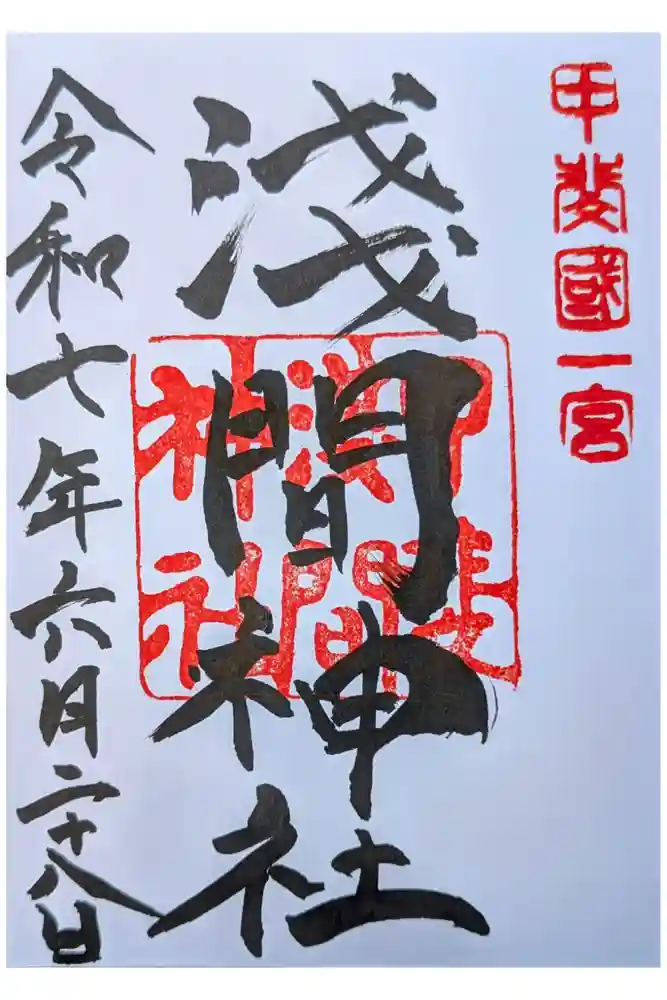 甲斐國一宮
淺間神社
甲斐
淺間
神社
令和七年六月二十八日